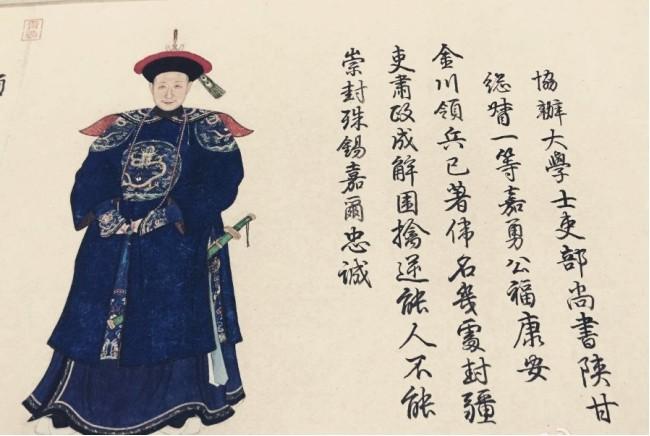 協辦大學士吏部尚書陝甘
總督一等嘉勇公福康安
金川領兵已著偉名幾處封疆
吏肅政成解圍擒逆能人不能
崇封殊錫嘉爾忠誠